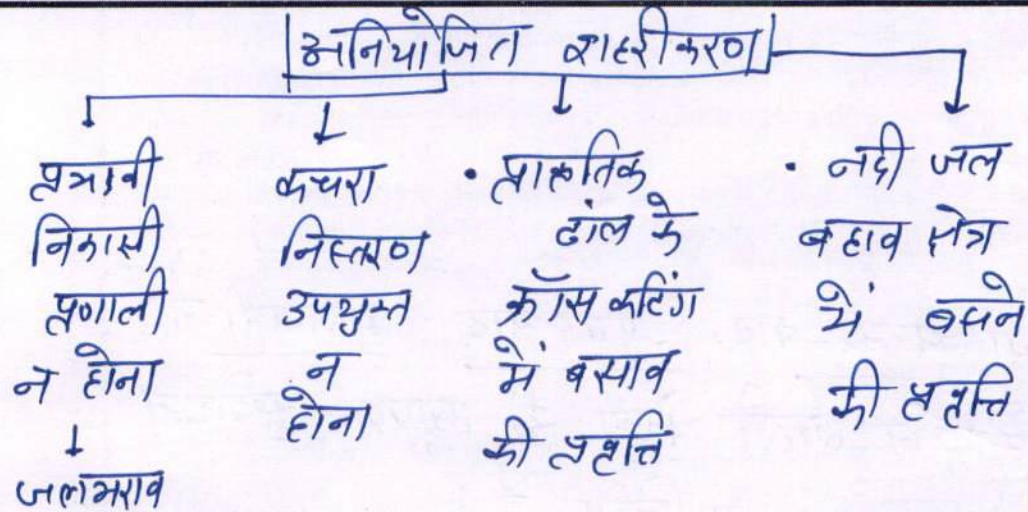 अनियोजित शहरीकरण
प्रभावी
निकासी
प्रणाली
न होना
जलभराव
कचरा
निस्तरण
उपयुक्त
न
होना
• प्राकृतिक
ढांल के
क्रॉस कटिंग
में बसाव
की प्रवृत्ति
• नदी जल
बहाव क्षेत्र
में बसने
की प्रवृत्ति